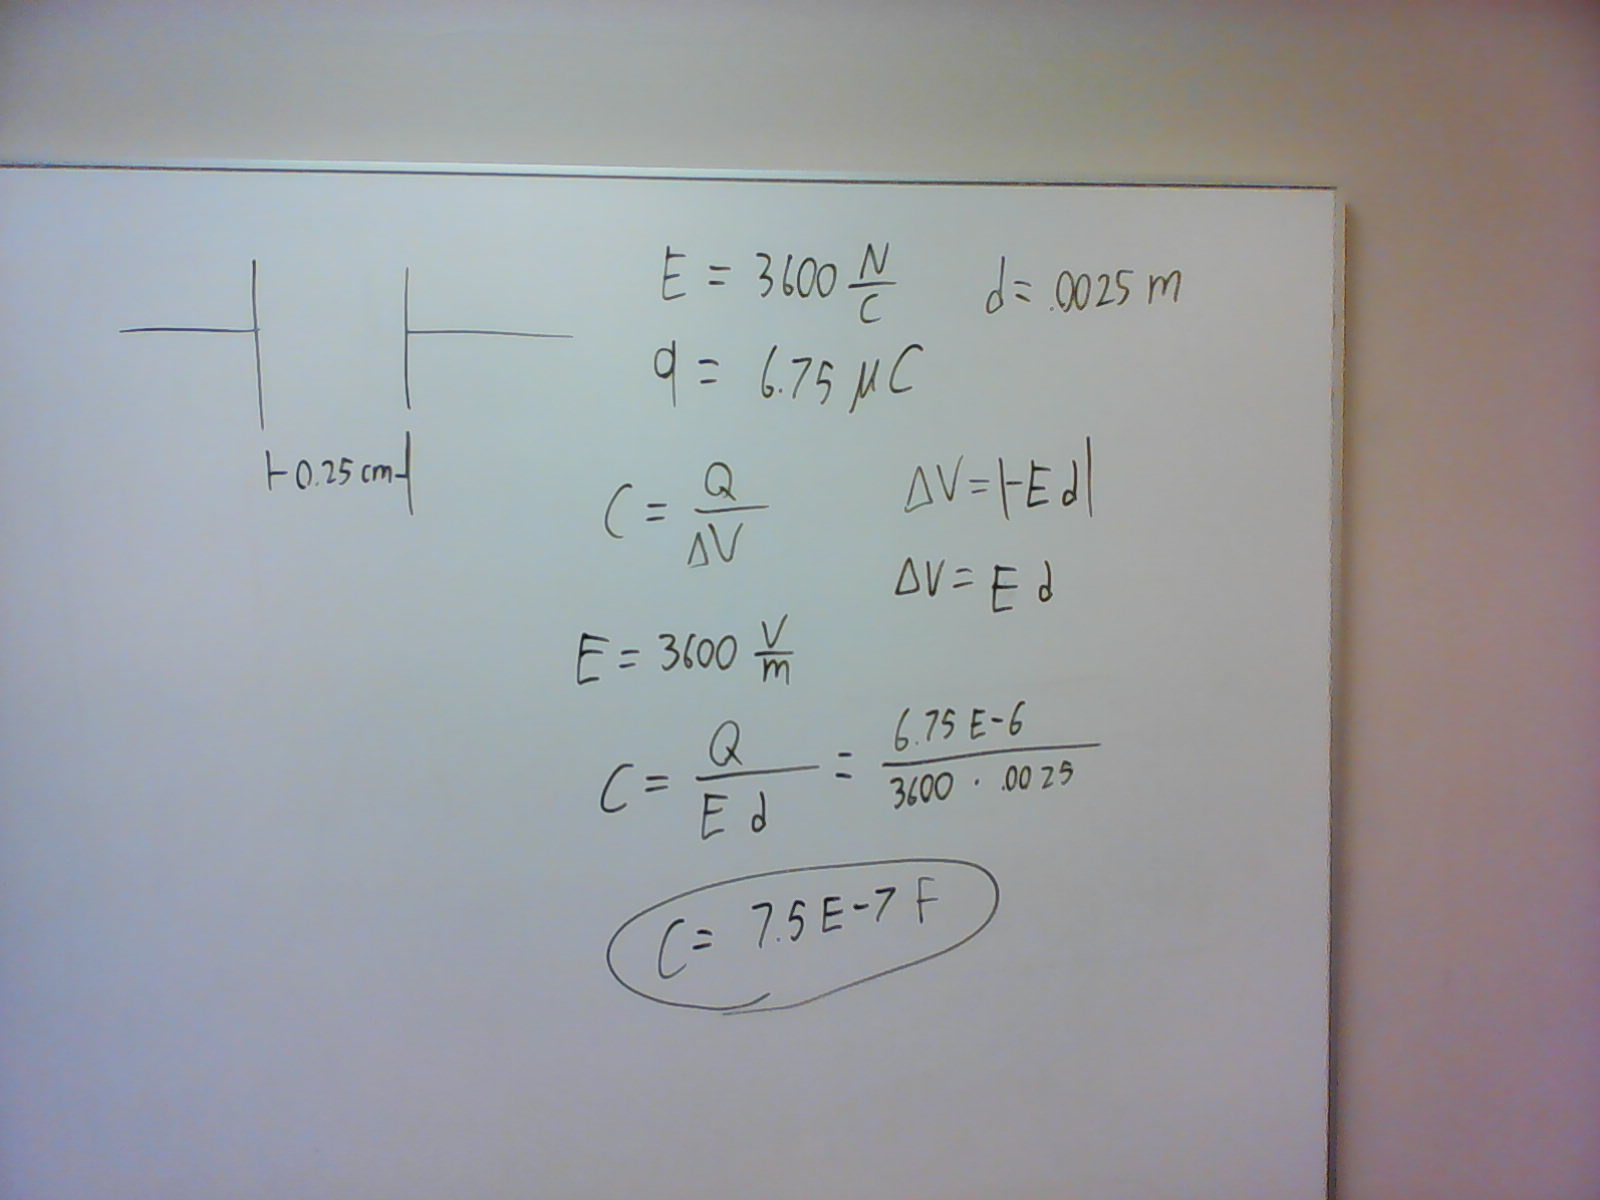 E = 3600 N/C   d = .0025 m
q = 6.75 μC
⊢ 0.25 cm ⊣
C = Q/ΔV   ΔV = |-E d|
ΔV = E d
E = 3600 V/m
C = Q/(E d) = 6.75 E-6/(3600 · .0025)
C = 7.5 E-7 F